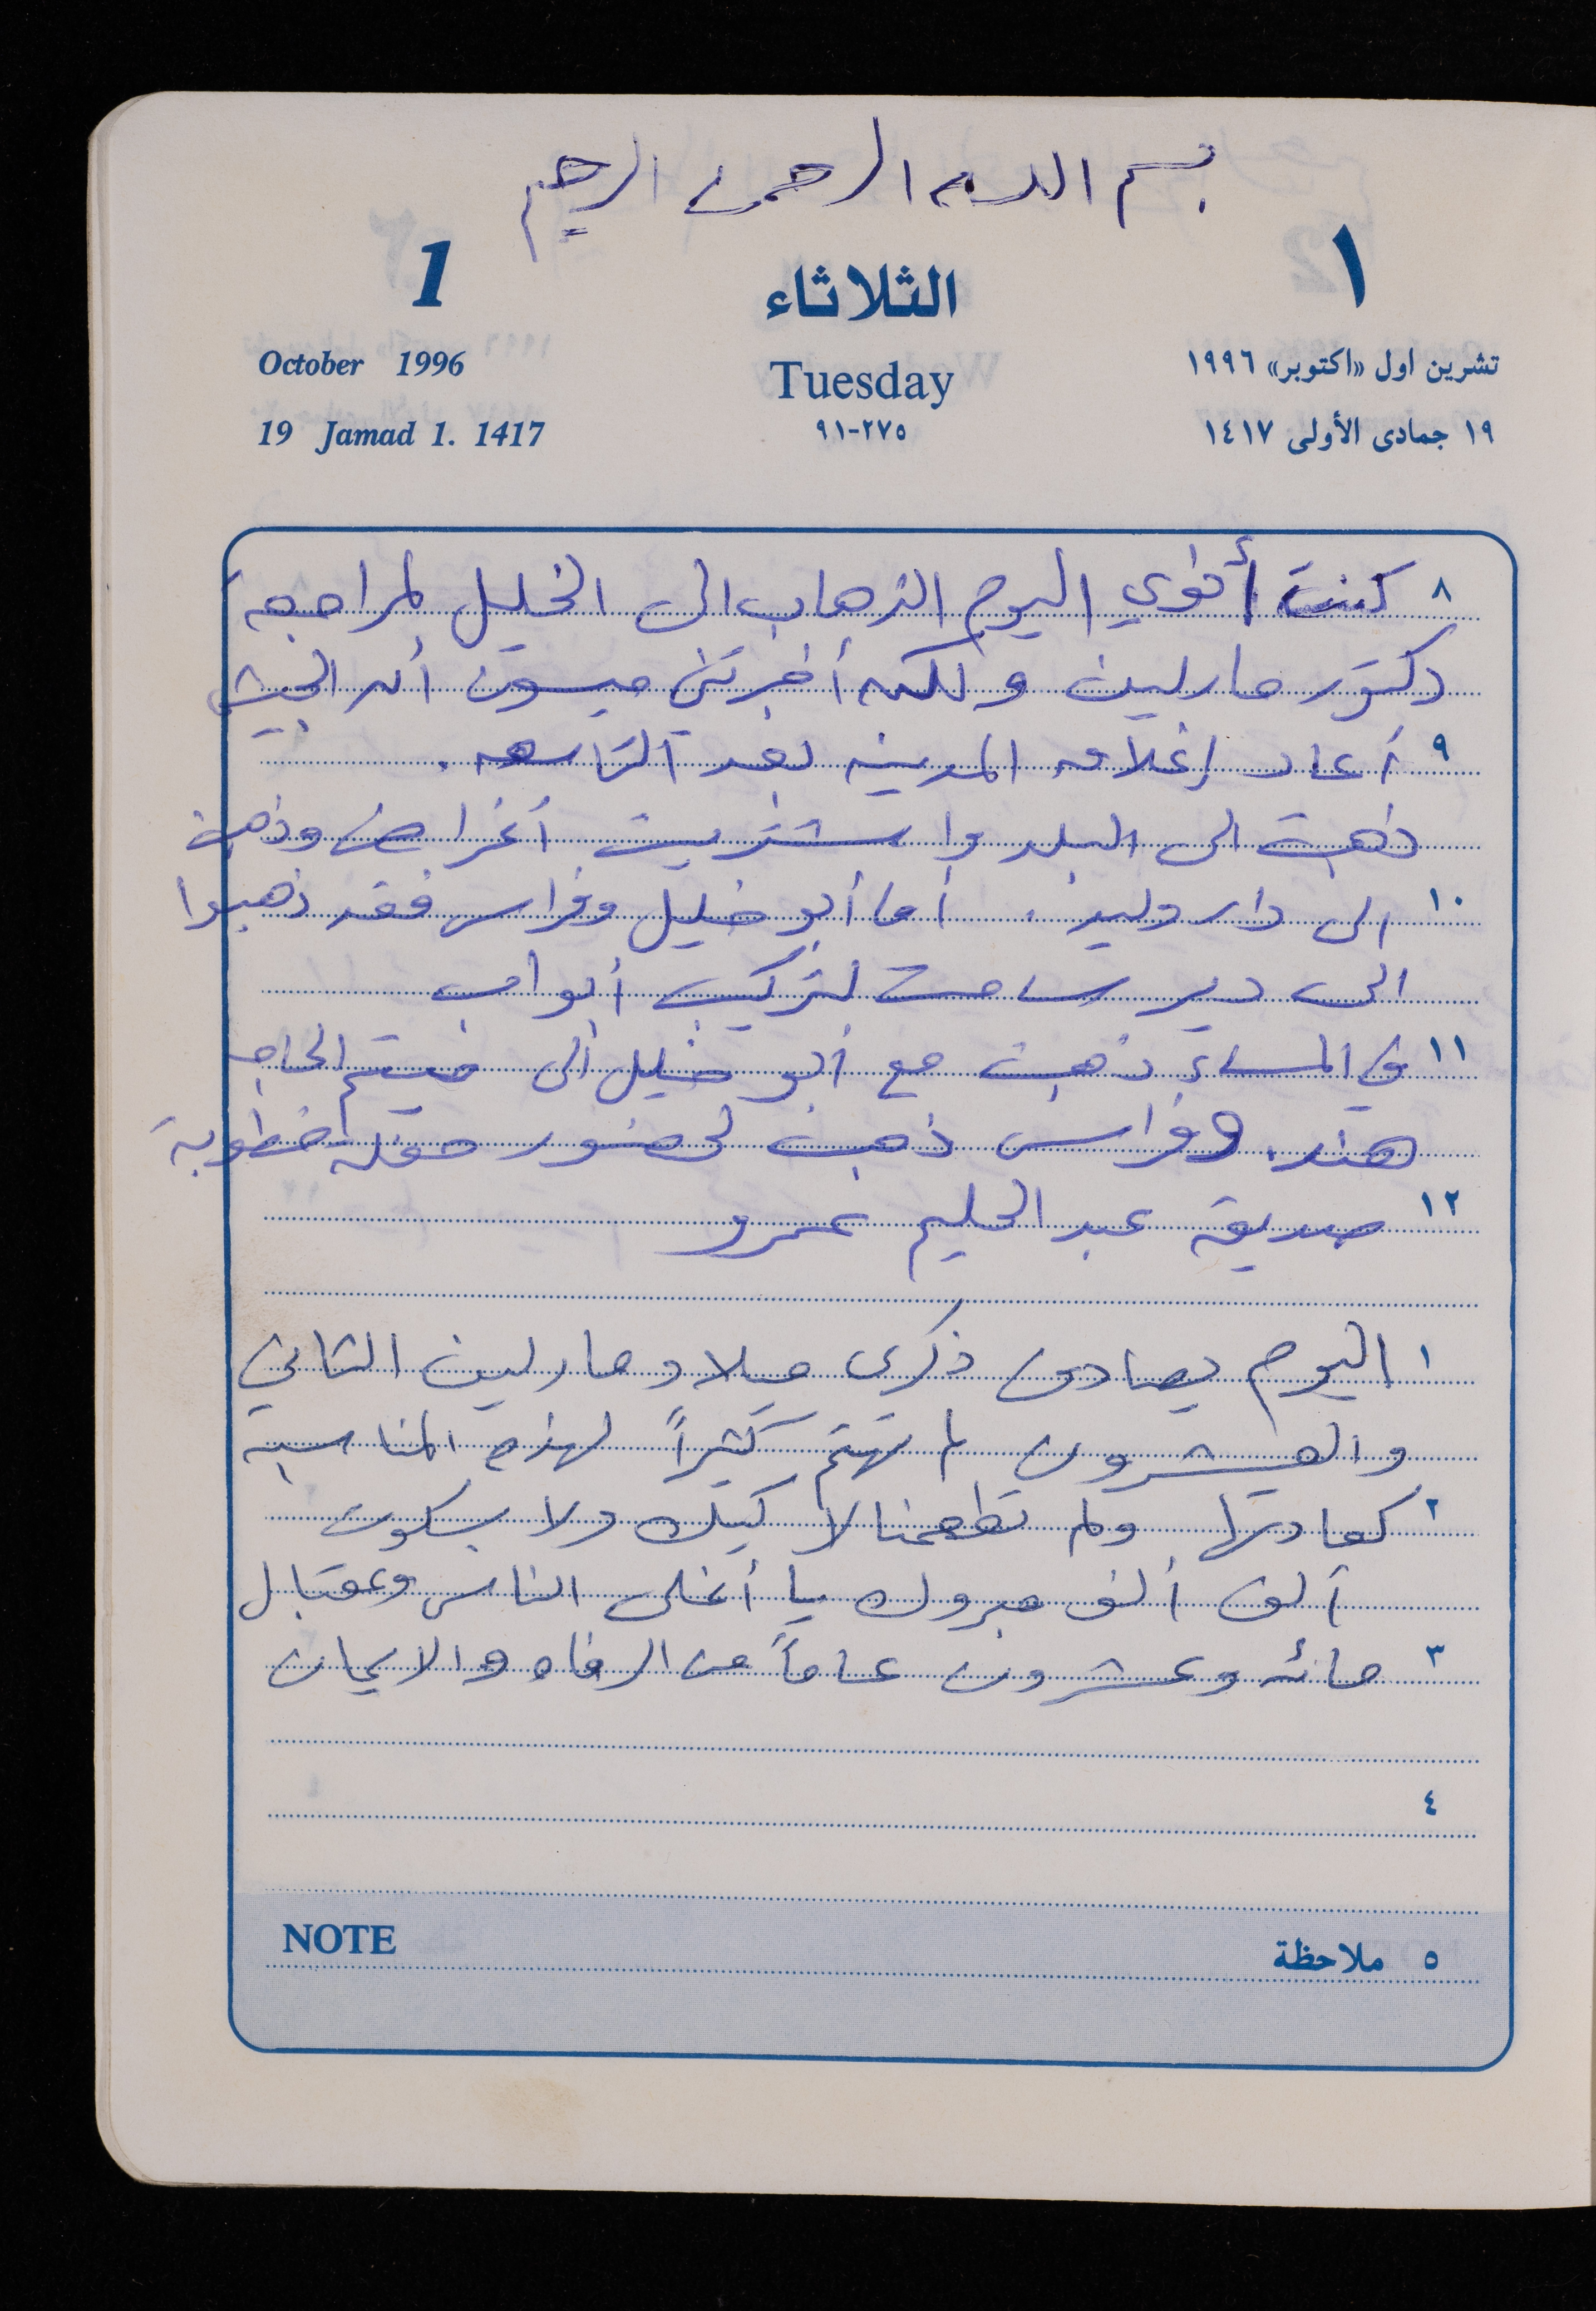 بسم الله الرحمن الرحيم
١ الثلاثاء 1
تشرين اول «اكتوبر» ١٩٩٦ Tuesday October 1996
١٩ جمادى الأولى ١٤١٧ ٢٧٥-٩١ 19 Jamad 1. 1417
٨ كنت أنوي اليوم الذهاب الى الخليل لمراجعة
دكتور مارلين ولكن أخبرتني ميسون أن الجيش
٩ أعاد إغلاق المدينه بعد التاسعه .
ذهبت الى البلد واشتريت أغراض وذهبت
١٠ الى دار وليد . أما أبو خليل وفراس فقد ذهبوا
الى دير سامت لتركيب أبواب
١١ في المساء ذهبت مع أبو خليل الى الحاجه
هند. وفراس ذهب لحضور حفله خطوبة
١٢ صديقه عبد الحليم عمرو
١ اليوم يصادف ذكرى ميلاد مارلين الثاني
والعشرون لم تهتم كثيراً لهذه المناسبة
٢ كعادتها ولم تطعمنا لا كيك ولا بسكوت
ألف ألف مبروك يا أغلى الناس وعقبال
٣ مائه وعشرون عاماً من الرفاه والايمان
٤
٥ ملاحظة NOTE